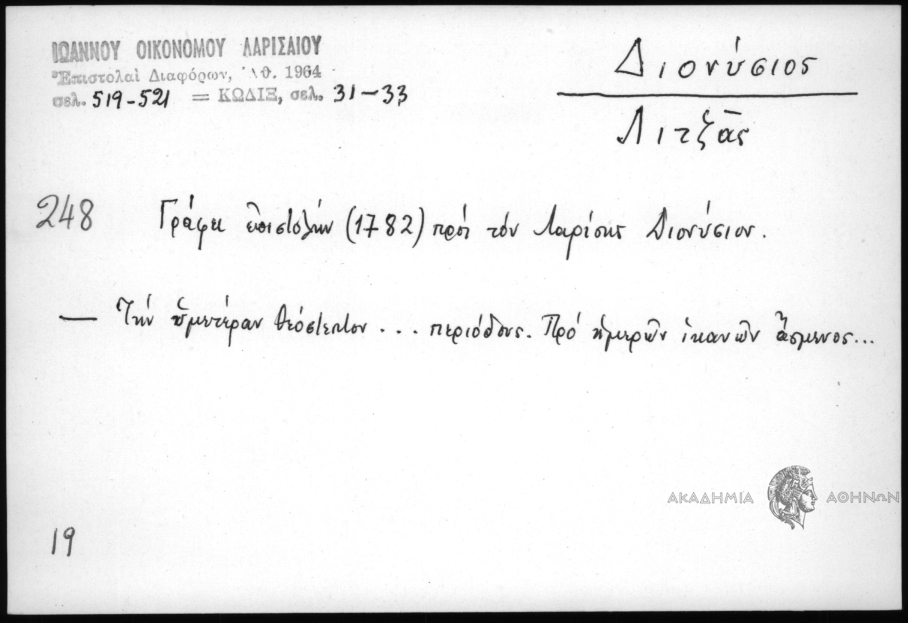 ΙΩΑΝΝΟΥ ΟΙΚΟΝΟΜΟΥ ΛΑΡΙΣΑΙΟΥ
Ἐπιστολαὶ Διαφόρων, Ἀθ. 1964
σελ. 519-521 = ΚΩΔΙΞ, σελ. 31-33
Διονύσιος
Λιτζᾶς
248 Γράφει ἐπιστολήν (1782) πρός τόν Λαρίσης Διονύσιον.
— Τήν ὑμετέραν θεόσλεπτον ... περιόδους. Πρό ἡμερῶν ἱκανῶν ἄσμενος...
19
ΑΚΑΔΗΜΙΑ ΑΘΗΝΩΝ